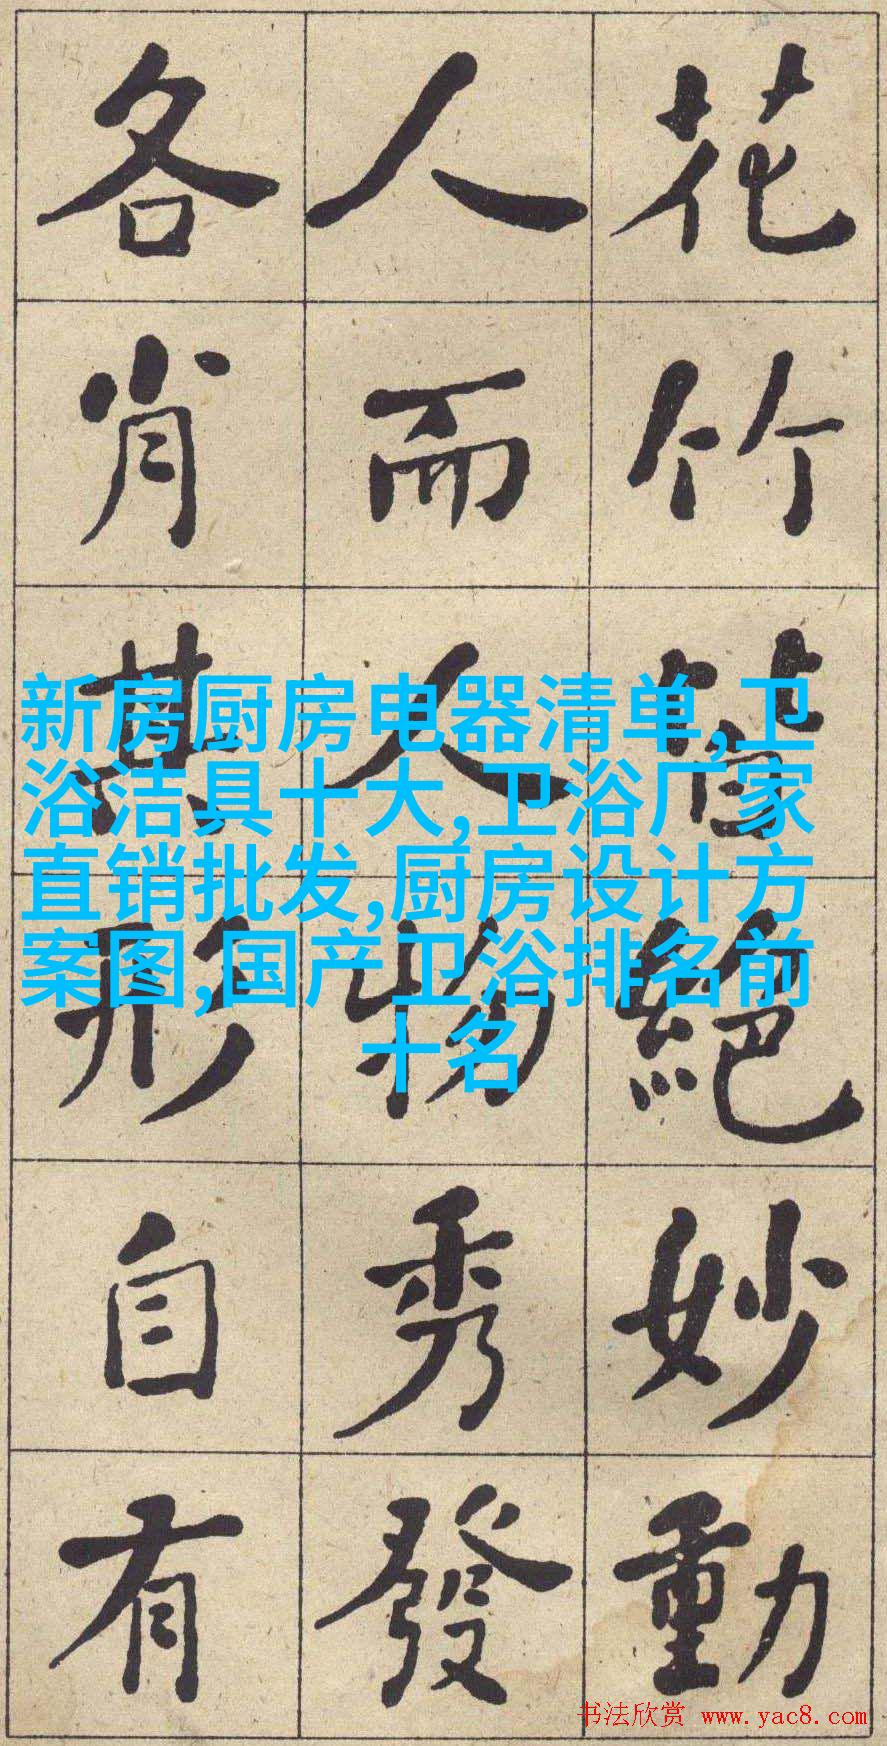 花竹皆絕妙動
人而人物秀發
各肖其形自有
新房厨房电器清单,卫
浴洁具十大,卫浴厂家
直销批发,厨房设计方
案图,国产卫浴排名前
十名
书法欣赏 www.yac8.com